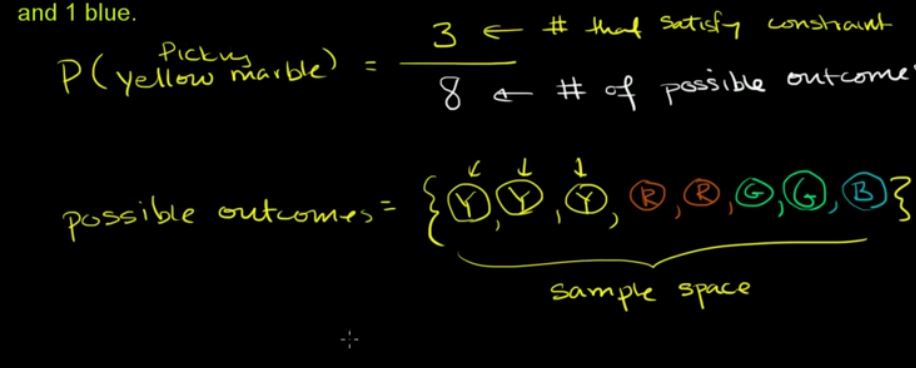 and 1 blue.
P(Picking yellow marble) = 3 ← # that satisfy constraint
8 ← # of possible outcome
possible outcomes = { Y, Y, Y, R, R, G, G, B }
sample space